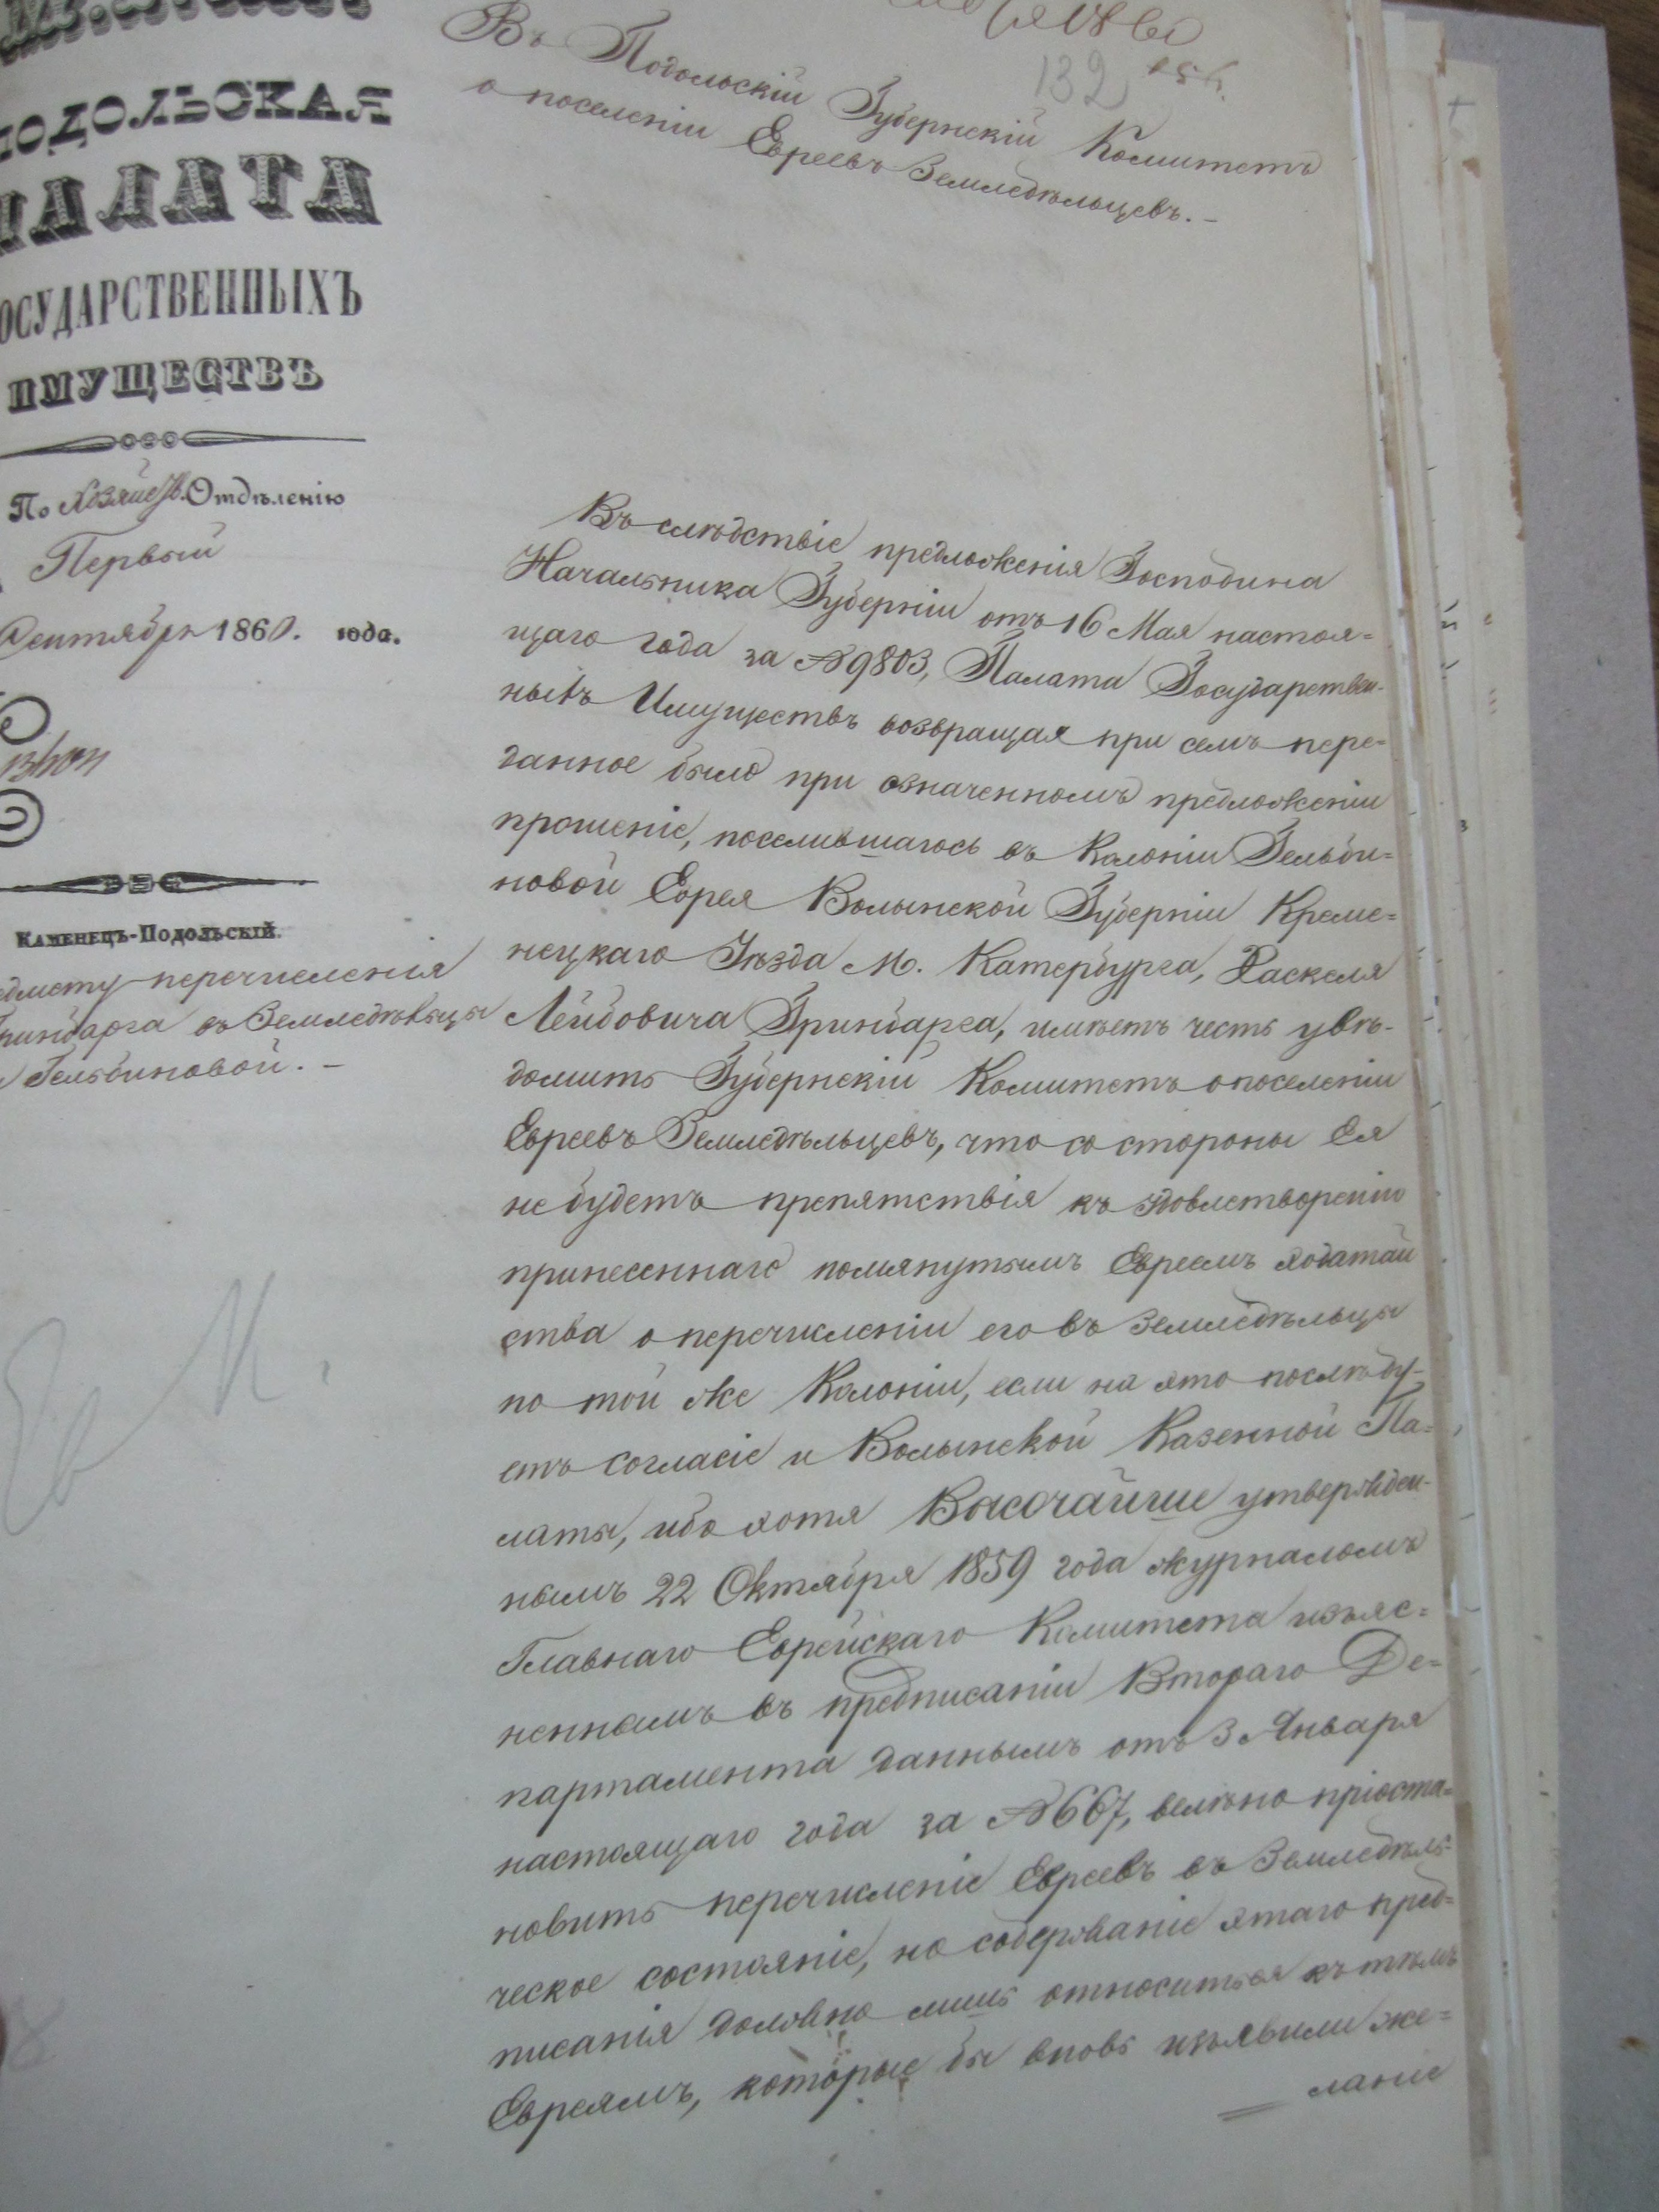 132
Въ Подольскій Губернскій Комитетъ
о поселеніи Евреевъ Земледѣльцевъ.-
ПОДОЛЬСКАЯ
ПАЛАТА
ОСУДАРСТВЕННЫХЪ
ИМУЩЕСТВЪ
По Хозяйств. Отдѣленію
Первый
Сентября 1860. года.
КАМЕНЕЦЪ-ПОДОЛЬСКІЙ.
перечисленія
ринбарга въ Земледѣльцы
Гельбиновой. -
Въ слѣдствіе предложенія Господина
Начальника Губерніи отъ 16 Мая настоя=
щаго года за №9803, Палата Государствен-
ныхъ Имуществъ возвращая при семъ пере=
данное было при означенномъ предложеніи
прошеніе, поселившагось въ Колоніи Гельби=
новой Еврея Волынской Губерніи Креме=
нецкаго Уѣзда М. Катербурга, Хаскеля
Лейбовича Гринбарга, имѣетъ честь увѣ-
домить Губернскій Комитетъ о поселеніи
Евреевъ Земледѣльцевъ, что со стороны Ея
не будетъ препятствія къ удовлетворенію
принесеннаго помянутымъ Евреемъ ходатай
ства о перечисленіи его въ Земледѣльцы
по той же Колоніи, если на это послѣду-
етъ согласіе и Волынской Казенной Па=
латы, ибо хотя Высочайше утвержден-
нымъ 22 Октября 1859 года журналомъ
Главнаго Еврейскаго Комитета изъяс=
неннымъ въ предписаніи Втораго Де=
партамента даннымъ отъ 3 Января
настоящаго года за №667, велѣно пріоста=
новить перечисленіе Евреевъ въ Земледѣль-
ческое состояніе, но содержаніе этаго пред=
писанія должно лишь относиться къ тѣмъ
Евреямъ, которые бы вновь изъявили же=
ланіе